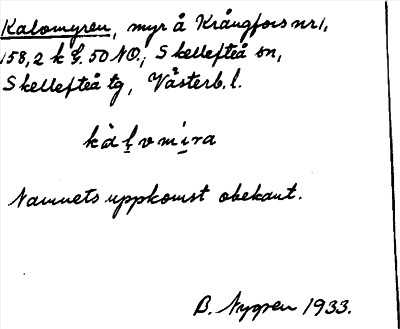 Kalomyren, myr å Krångfors nr 1,
158,2 k ... 50 NO.; Skellefteå sn,
Skellefteå tg, Västerb. l.
kàḷvomìra
Namnets uppkomst obekant.
B. Nygren 1933.